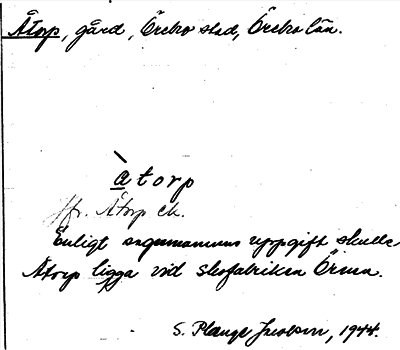 Åtorp, gård, Örebro stad, Örebro län.
åtorp
Jfr. Åtorp ek.
Enligt sagesmannens uppgift skulle
Åtorp ligga vid skofabriken Örnen.
S. Plauge Jacobson, 1944.